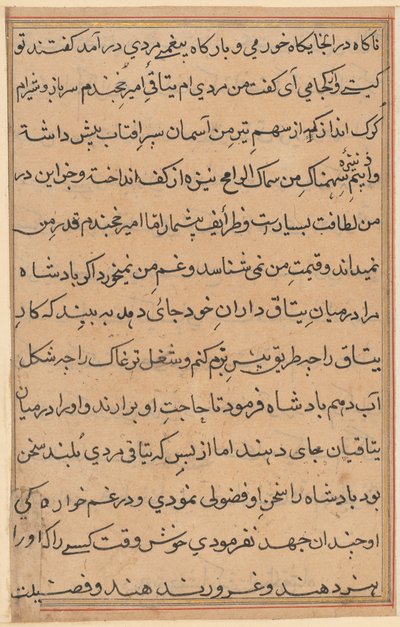 ناکاه در انجایکاه خورمی و بارکاه بیغمی مردی در آمد کفتند تو
کیستی و از کجامی آی کفت من مردی ام یتاقی امیر خجندم سرباز و شیرام
کرک انداز که از سهم تیر من آسمان سپر افتاب پیش داشة
و از بیم نیزه سهمناک من سماک الرامح نیزه از کف انداخته و جز این در
من لطافت بسیارست و ظرایف بیشمار اما امیر خجندم قدر من
نمیداند و قیمت من نمی شناسد و غم من نمیخورد اکر بادشاه
مرا در میان یتاق داران خود جای دهد به بیند که کار
یتاق را چه طریق پیش برم کنم و شغل ترغاک را چه شکل
آب دهم بادشاه فرمود تا حاجت او برارند و او را در میان
یتاقیان جای دهند اما از بس که یتاقی مردی بلند سخن
بود بادشاه را سخن او فضولی نمودی و در غم خواره کی
او چندان جهد نفرمودی خوش وقت کسی را که او را
هنر دهند و غرور ندهند و فضیلت